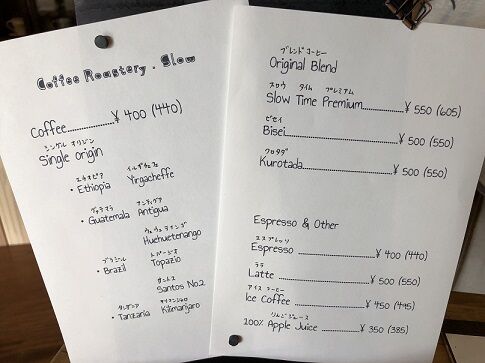 Coffee Roastery . Slow
Coffee..............¥ 400 (440)
シングル オリジン
Single origin
エチオピア イルガチェフェ
• Ethiopia Yirgacheffe
グァテマラ アンティグア
• Guatemala Antigua
ウェウェテナンゴ
Huehuetenango
ブラジル トパージオ
• Brazil Topazio
サントス
Santos No.2
タンザニア キリマンジャロ
• Tanzania Kilimanjaro
ブレンドコーヒー
Original Blend
スロウ タイム プレミアム
Slow Time Premium..............¥ 550 (605)
ビセイ
Bisei..............¥ 500 (550)
クロタダ
Kurotada..............¥ 500 (550)
Espresso & Other
エスプレッソ
Espresso ..............¥ 400 (440)
ラテ
Latte ..............¥ 500 (550)
アイス コーヒー
Ice Coffee ..............¥ 450 (495)
りんごジュース
100% Apple Juice ..............¥ 350 (385)